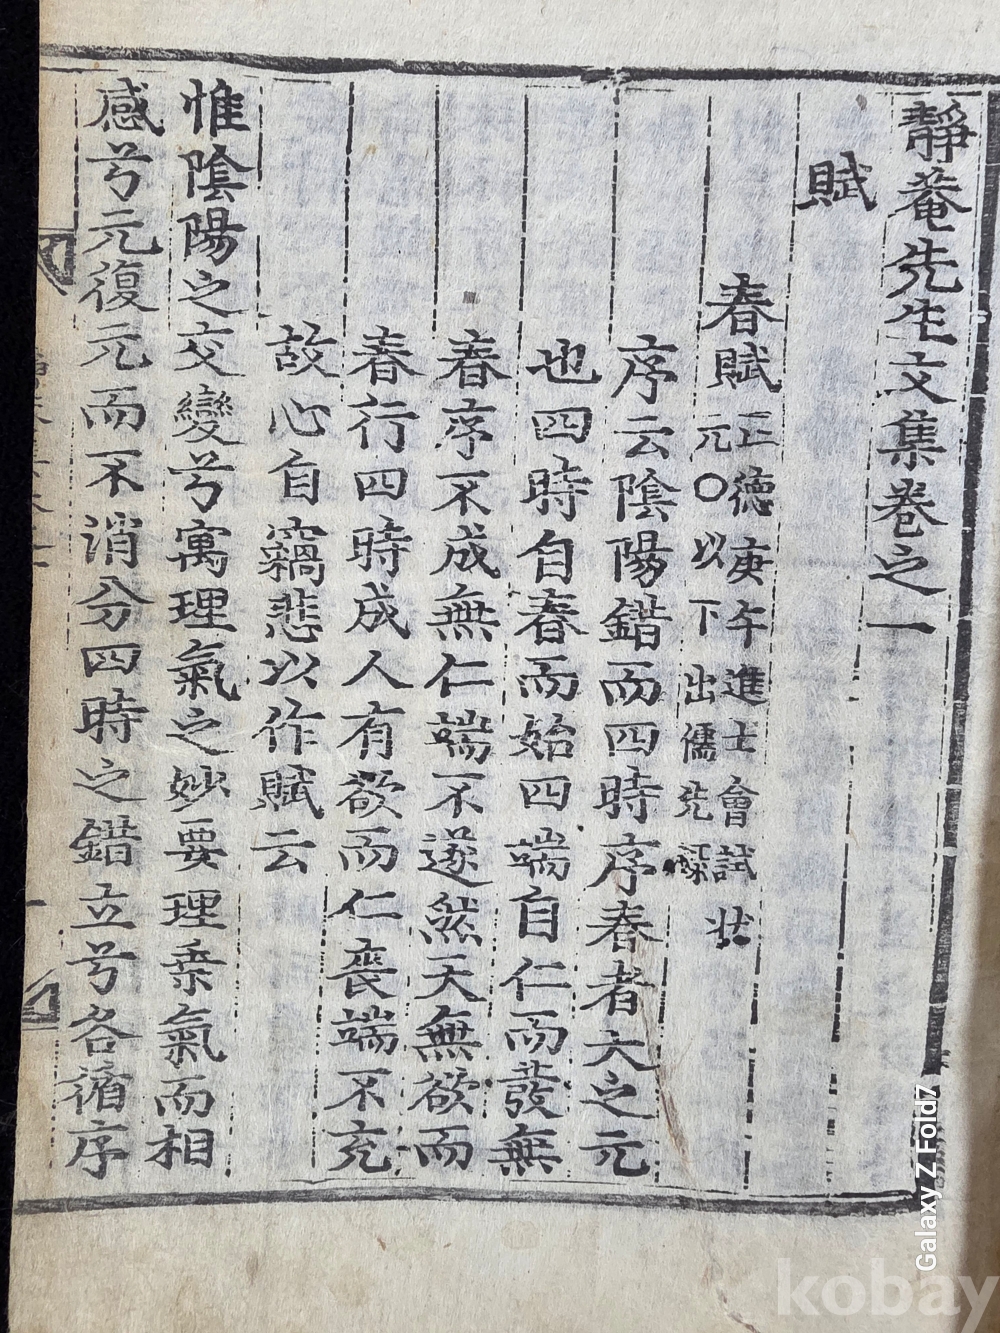 靜菴先生文集卷之一
賦
春賦
正德庚午進士會試狀
元○以下出儒先錄
序云陰陽錯而四時序春者天之元
也四時自春而始四端自仁而發無
春序不成無仁端不遂然天無欲而
春行四時成人有欲而仁喪端不充
故心自竊悲以作賦云
惟陰陽之交變兮寓理氣之妙要理乘氣而相
感兮元復元而不消分四時之錯立兮各循序
Galaxy Z Fold7
kobay